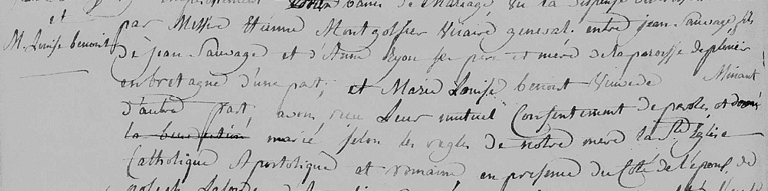 et
M. Louise benoit
bans de Mariage Vu la dispense
par Messire Etienne Montgolfier Vicaire general entre jean Sauvage fils
de jean Sauvage et d'Anne ses pere et mere de la paroisse de
en bretagne d'une part; et Marie Louise benoit Veuve de
d'autre part avons reçu Leur mutuel Consentement de paroles et donné
la benediction marié selon les regles de notre mere la Ste Eglise
Catholique Apostolique et romaine en presence du Coté de l'epoux, de
joseph